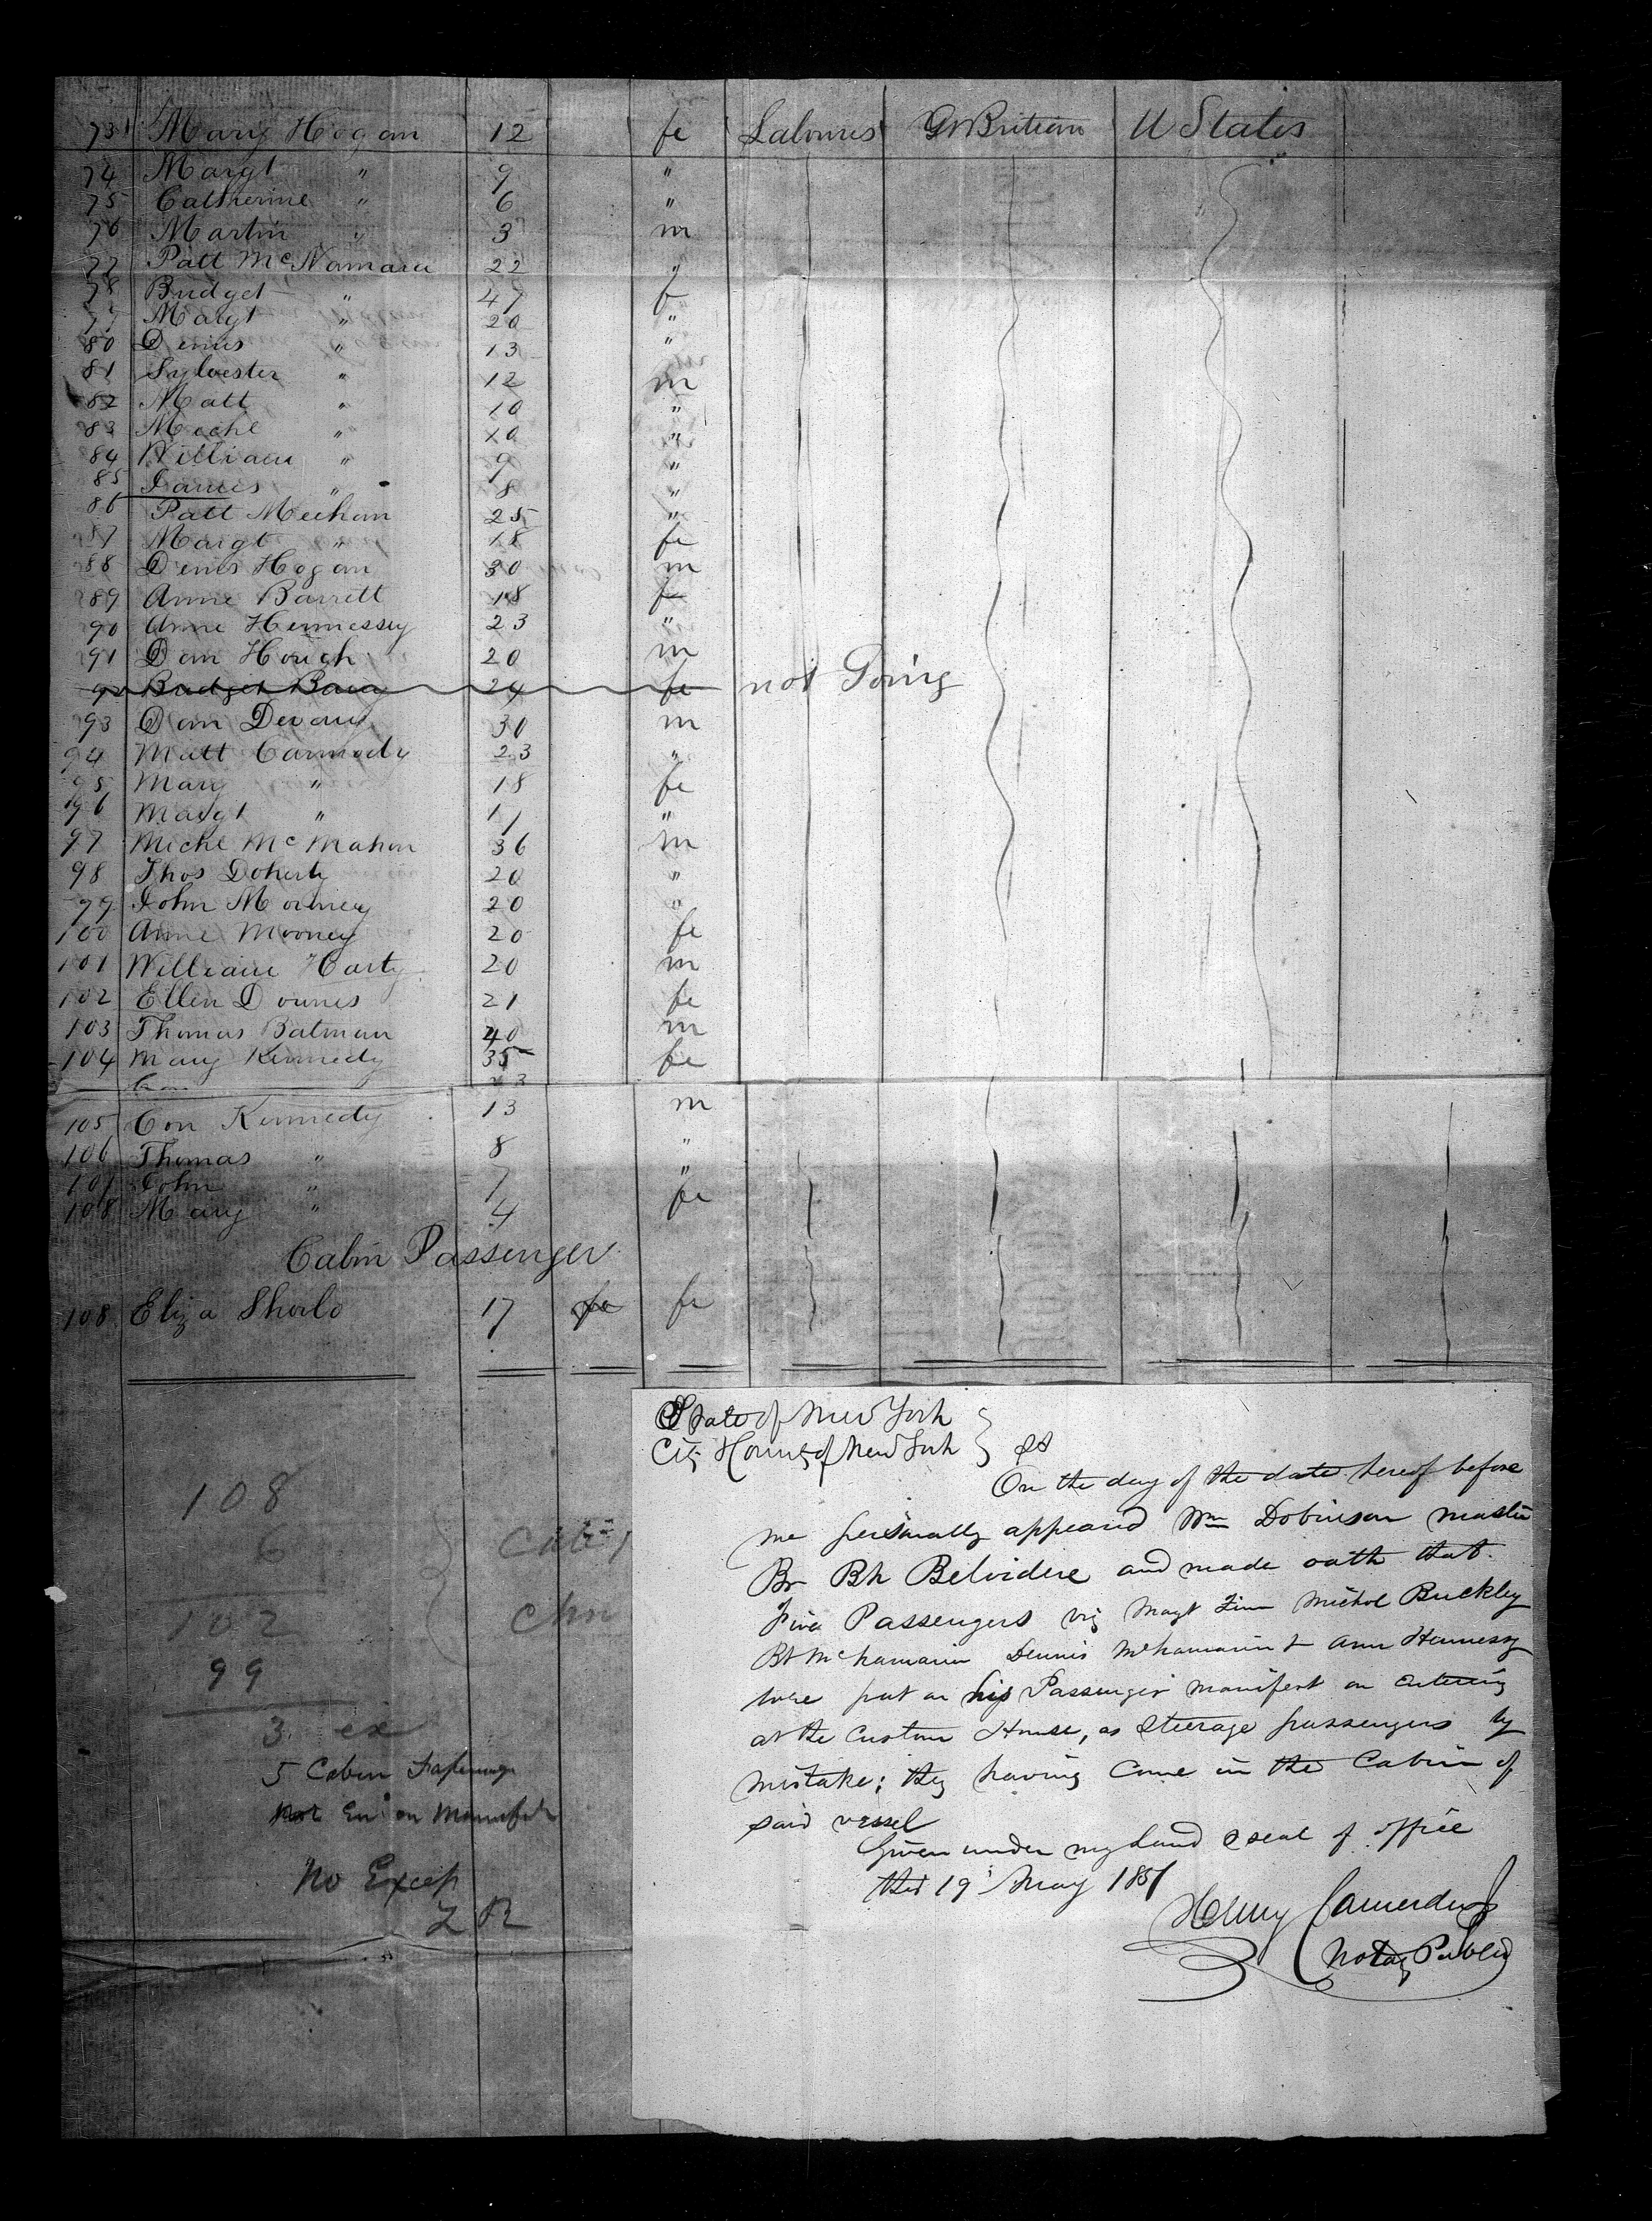 73 Mary Hogan 12 fe Labourers Gt Britian U States
74 Margt " 9 "
75 Catherine " 6 "
76 Martin " 3 m
77 Patt McNamara 22 "
78 Bridget " 47 f
79 Margt " 20 "
80 Denis " 13 "
81 Sylvester " 12 m
82 Matt " 10 "
83 Michl " 10 "
84 William " 9 "
85 James " 8 "
86 Patt Meehan 25 "
87 Margt " 18 fe
88 Denis Hogan 30 m
89 Anne Barrett 18 fe
90 Anne Hennessy 23 "
91 Dan Hough 20 m
92 Bridget 24 fe not Going
93 Dan 30 m
94 Matt Carmody 23 "
95 Mary " 18 fe
96 Margt " 11 "
97 Michl McMahon 36 m
98 Thos Doherty 20 "
99 John 20 "
100 Anne Mooney 20 fe
101 William Harty 20 m
102 Ellen Downes 21 fe
103 Thomas Batman 40 m
104 Mary Kennedy 35 fe
Con
105 Con Kennedy 13 m
106 Thomas " 8 "
107 John " 7 "
108 Mary " 4 fe
Cabin Passenger
108 Eliza 17 fe fe
State of New York
City & County of New York } SS
On the day of the date hereof before
me personally appeared Wm Dobinson master
Br Bk Belvidere and made oath that
Five Passengers viz Margt Michol Buckley
Bt McNamara Dennis McNamara & Ann Hennessy
were put on his Passenger manifest on entering
at the Custom House, as Steerage passengers by
mistake; they having Come in the Cabin of
said vessel
Given under my hand & seal of office
this 19 May 1851
Henry Camerden Jr
Notary Public
108
6
102
99
3 ex
5 Cabin Passengers
Not En on Manifest
No Excep